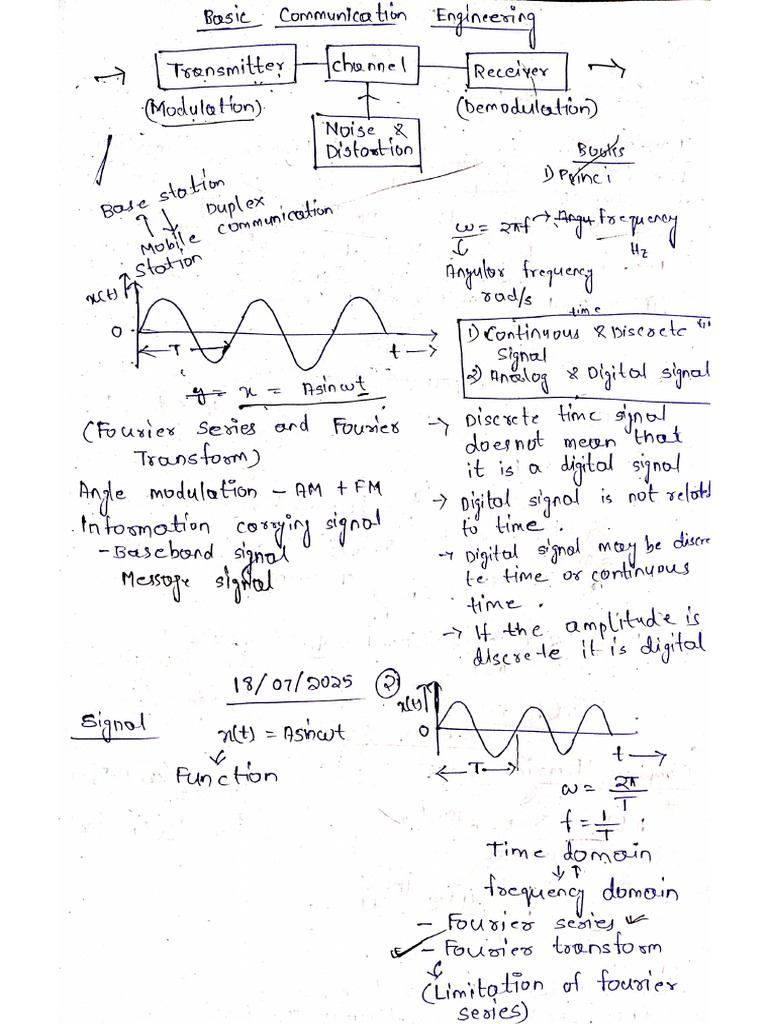 Basic Communication Engineering
Transmitter
channel
Receiver
(Modulation)
(Demodulation)
Noise &
Distortion
Books
1) Princi
Base station
Duplex
communication
Mobile
station
ω = 2πf → Angu frequency
Hz
Angular frequency
rad/s
x(t)
0
T
t
y = x = Asinωt
time
1) Continuous & Discrete
signal
2) Analog & Digital signal
(Fourier series and Fourier
Transform)
Angle modulation - AM + FM
Information carrying signal
- Baseband signal
Message signal
→ Discrete time signal
doesnot mean that
it is a digital signal
→ Digital signal is not relatd
to time.
→ Digital signal may be discre
te time or continuous
time.
→ If the amplitude is
discrete it is digital
18/07/2025
Signal
x(t) = Asinωt
Function
2
x(t)
0
T
t
ω = 2π/T
f = 1/T
Time domain
frequency domain
- Fourier series
- Fourier transform
(Limitation of fourier
series)